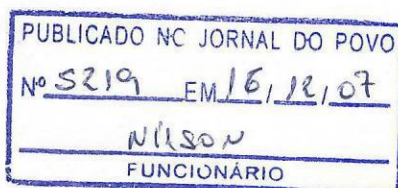 PUBLICADO NO JORNAL DO POVO
Nº 5219 EM 16/12/07
NILSON
FUNCIONÁRIO